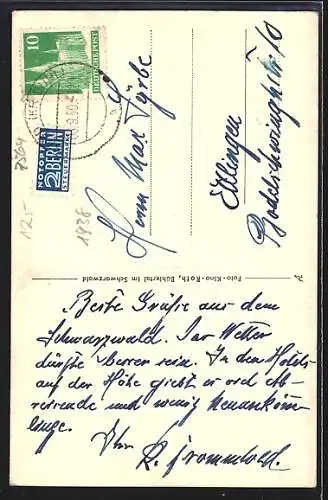 10
DEUTSCHE POST
NOTOPFER
2 BERLIN
STEUERMARKE
7564
12.-
1938
Herrn Max Färbe
Ettlingen
Bodelschwinghstr. 10
Foto-Kino-Roth, Bühlertal im Schwarzwald
Beste Grüße aus dem
Schwarzwald. Das Wetter
dürfte besser sein. In den Hotels
auf der Höhe giebt es viel Ab-
reisende und wenig Neuankömm-
linge.
Ihr
R. Frommhold.